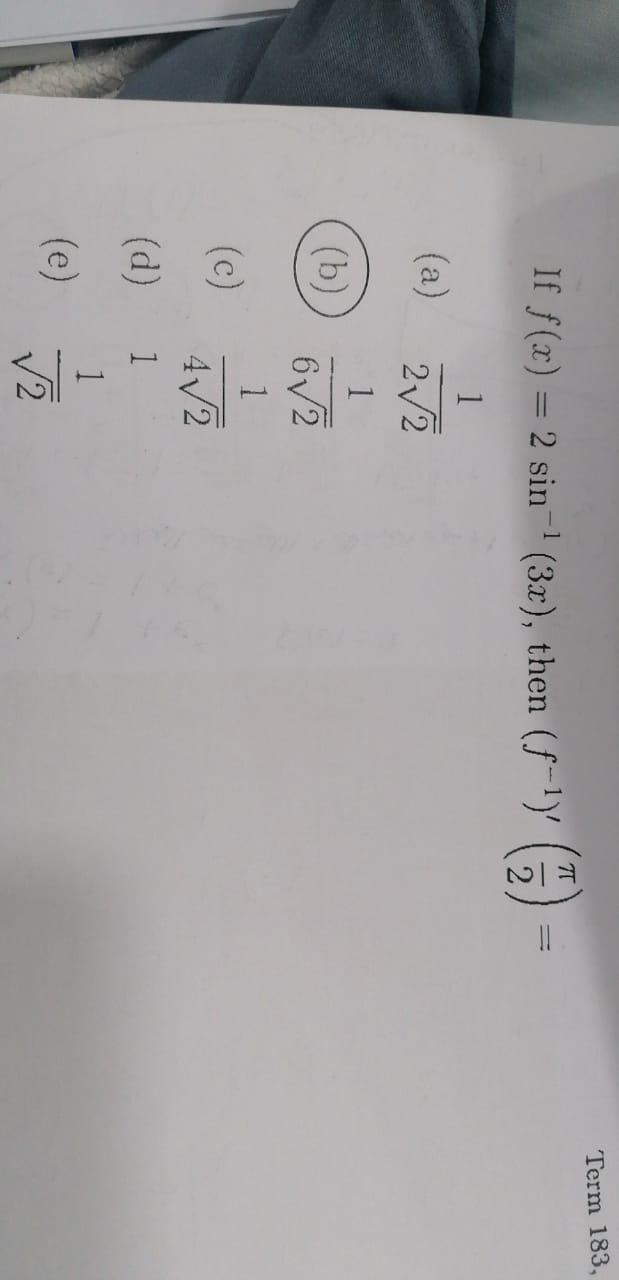 Term 183,
If f(x) = 2 sin⁻¹(3x), then (f⁻¹)′(π/2) =
(a) 1/(2√2)
(b) 1/(6√2)
(c) 1/(4√2)
(d) 1
(e) 1/√2